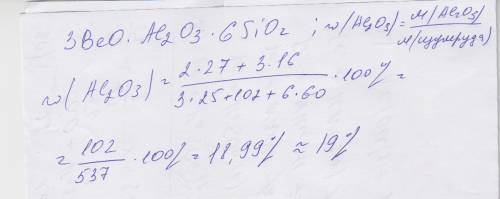 3BeO · Al2O3 · 6SiO2 ; w(Al2O3) = M(Al2O3) / M(изумруда)
w(Al2O3) = (2·27 + 3·16) / (3·25+102+6·60) · 100% =
= 102/537 · 100% = 18,99% ≈ 19%